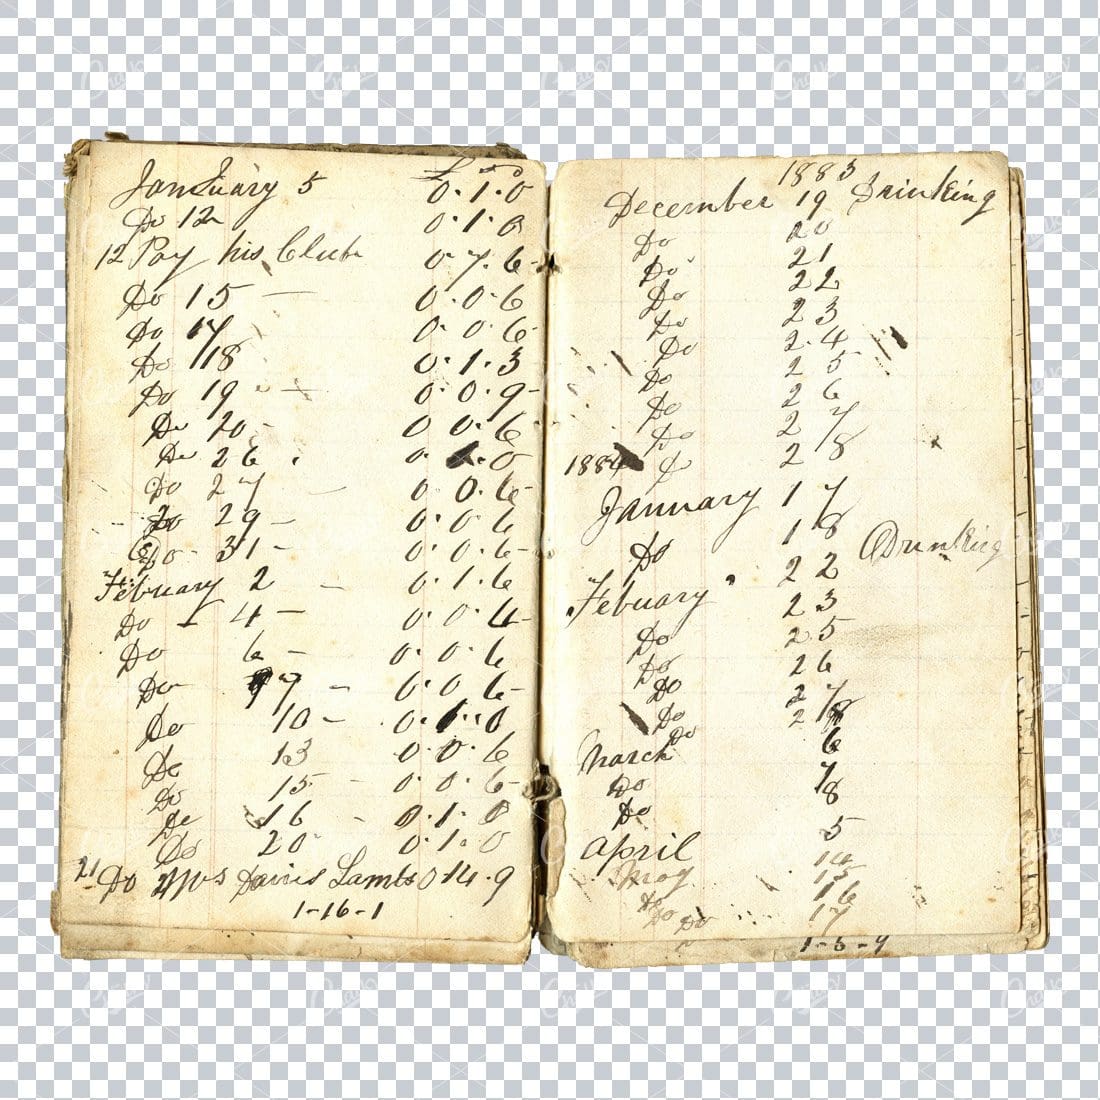 January 5 0.1.0
Do 12 0.1.0
12 Pay his Club 0.7.6
Do 15 — 0.0.6
Do 17 0.0.6
Do 18 0.1.3
Do 19 — 0.0.9
Do 20 0.0.6
Do 26 0. .0
Do 27 — 0.0.6
Do 29 — 0.0.6
Do 31 — 0.0.6
Febuary 2 — 0.1.6
Do 4 — 0.0.4
Do 6 — 0.0.6
Do 7 — 0.0.6
Do 10 — 0.1.0
Do 13 0.0.6
Do 15 — 0.0.6
Do 16 — 0.1.0
Do 20 0.1.0
21 Do Lambs 0 14.9
1-16-1
1883
December 19 Drinking
Do 20
Do 21
Do 22
Do 23
Do 24
Do 25
Do 26
Do 27
1884 28
January 17
Do 18 Drunking
22
Febuary 23
Do 25
Do 26
Do 27
Do 28
Do 6
March 7
Do 8
Do
April 5
May 14
15
Do 16
Do Do 17
1-5-9